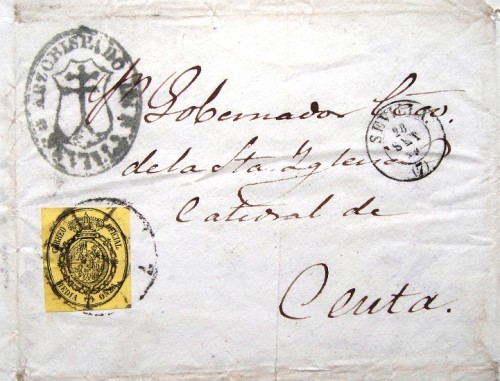 ARZOBISPADO DE SEVILLA
Sr. Gobernador Ecco.
de la Sta. Yglesia
Catedral de
Ceuta.
SEVILLA.
20
SET
(7)
CORREO OFICIAL
MEDIA ONZA